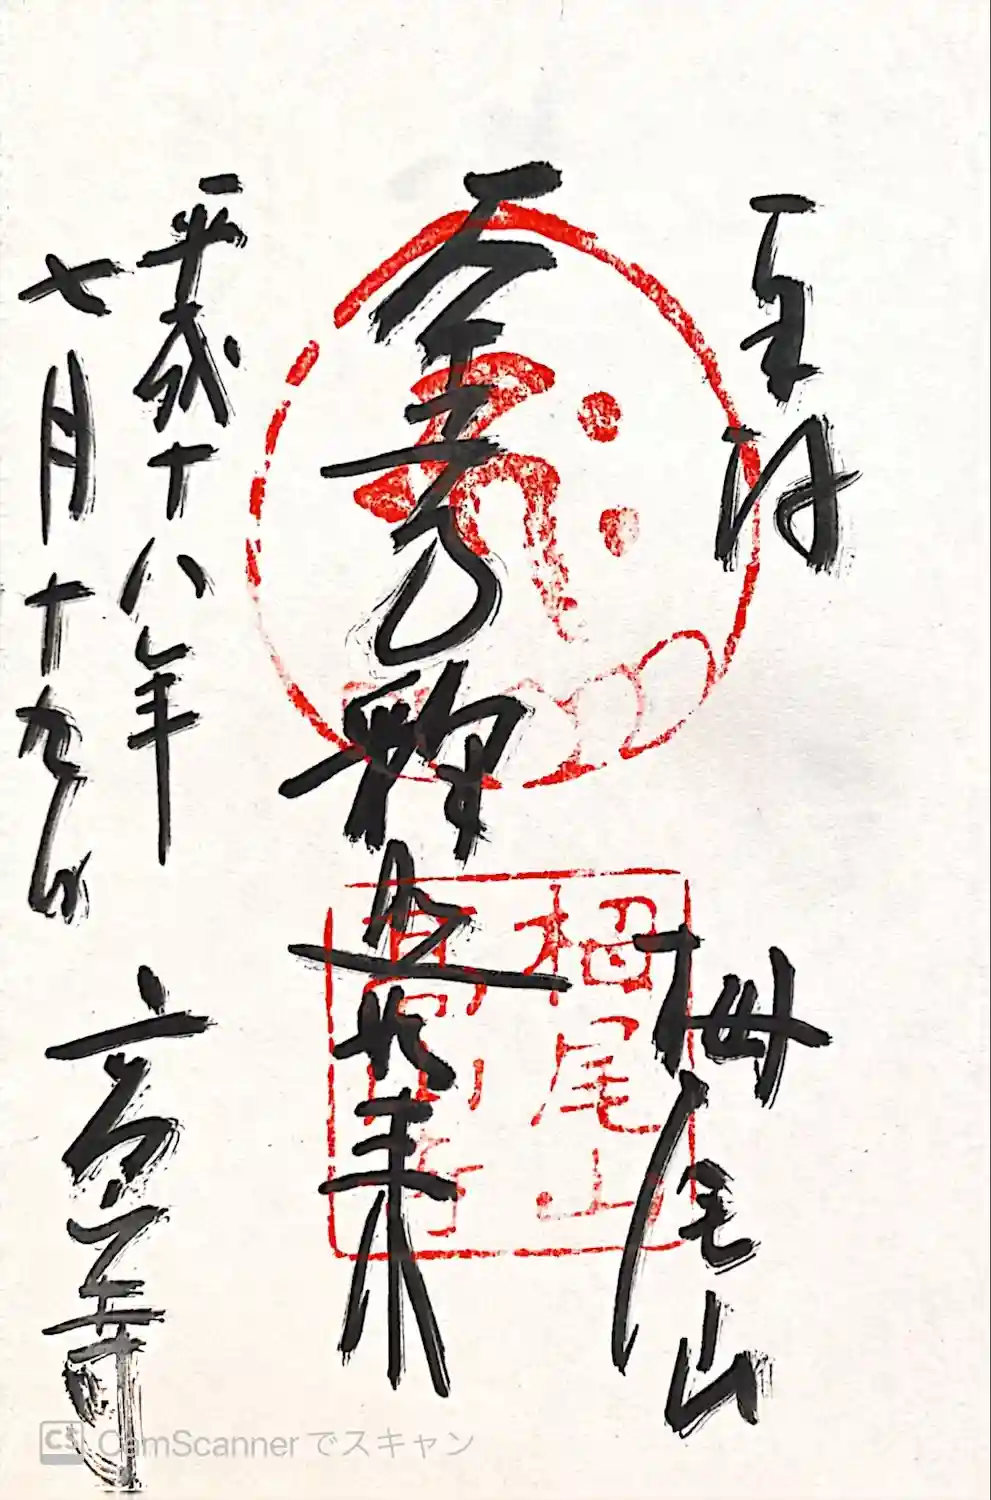 栂尾山
南無釋迦如来
平成十八年
七月十九日
高山寺
栂尾山
高山寺
CS CamScanner でスキャン